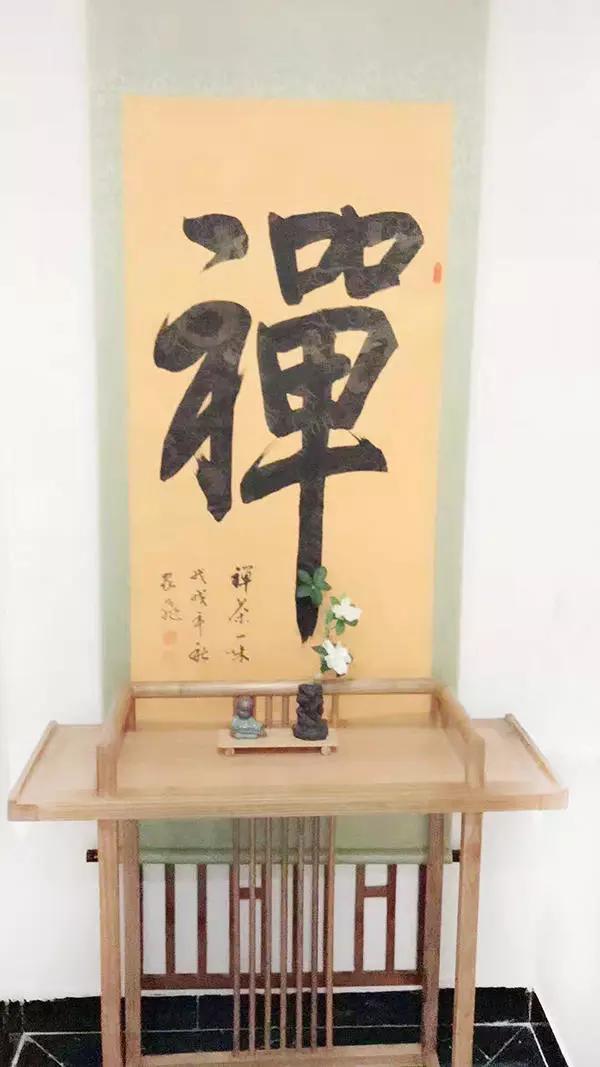 禪
禪茶一味
戊戌年秋